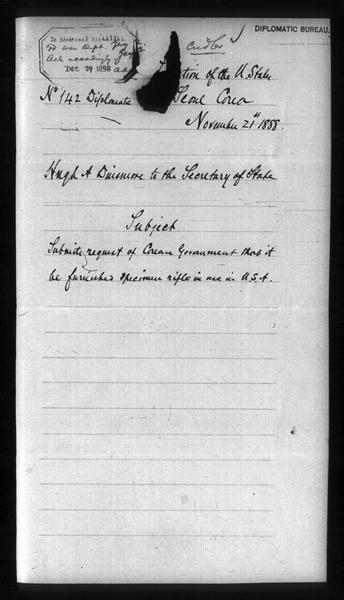 DIPLOMATIC BUREAU.
To War Dept.
Ack accordingly
DEC 29 1888
of the U. States
No 142 Diplomatic Seoul Corea
November 21st 1888.
Hugh A Dinsmore to the Secretary of State
Subject
Submits request of Corean Government that it
be furnished specimen rifle in use in U.S.A.